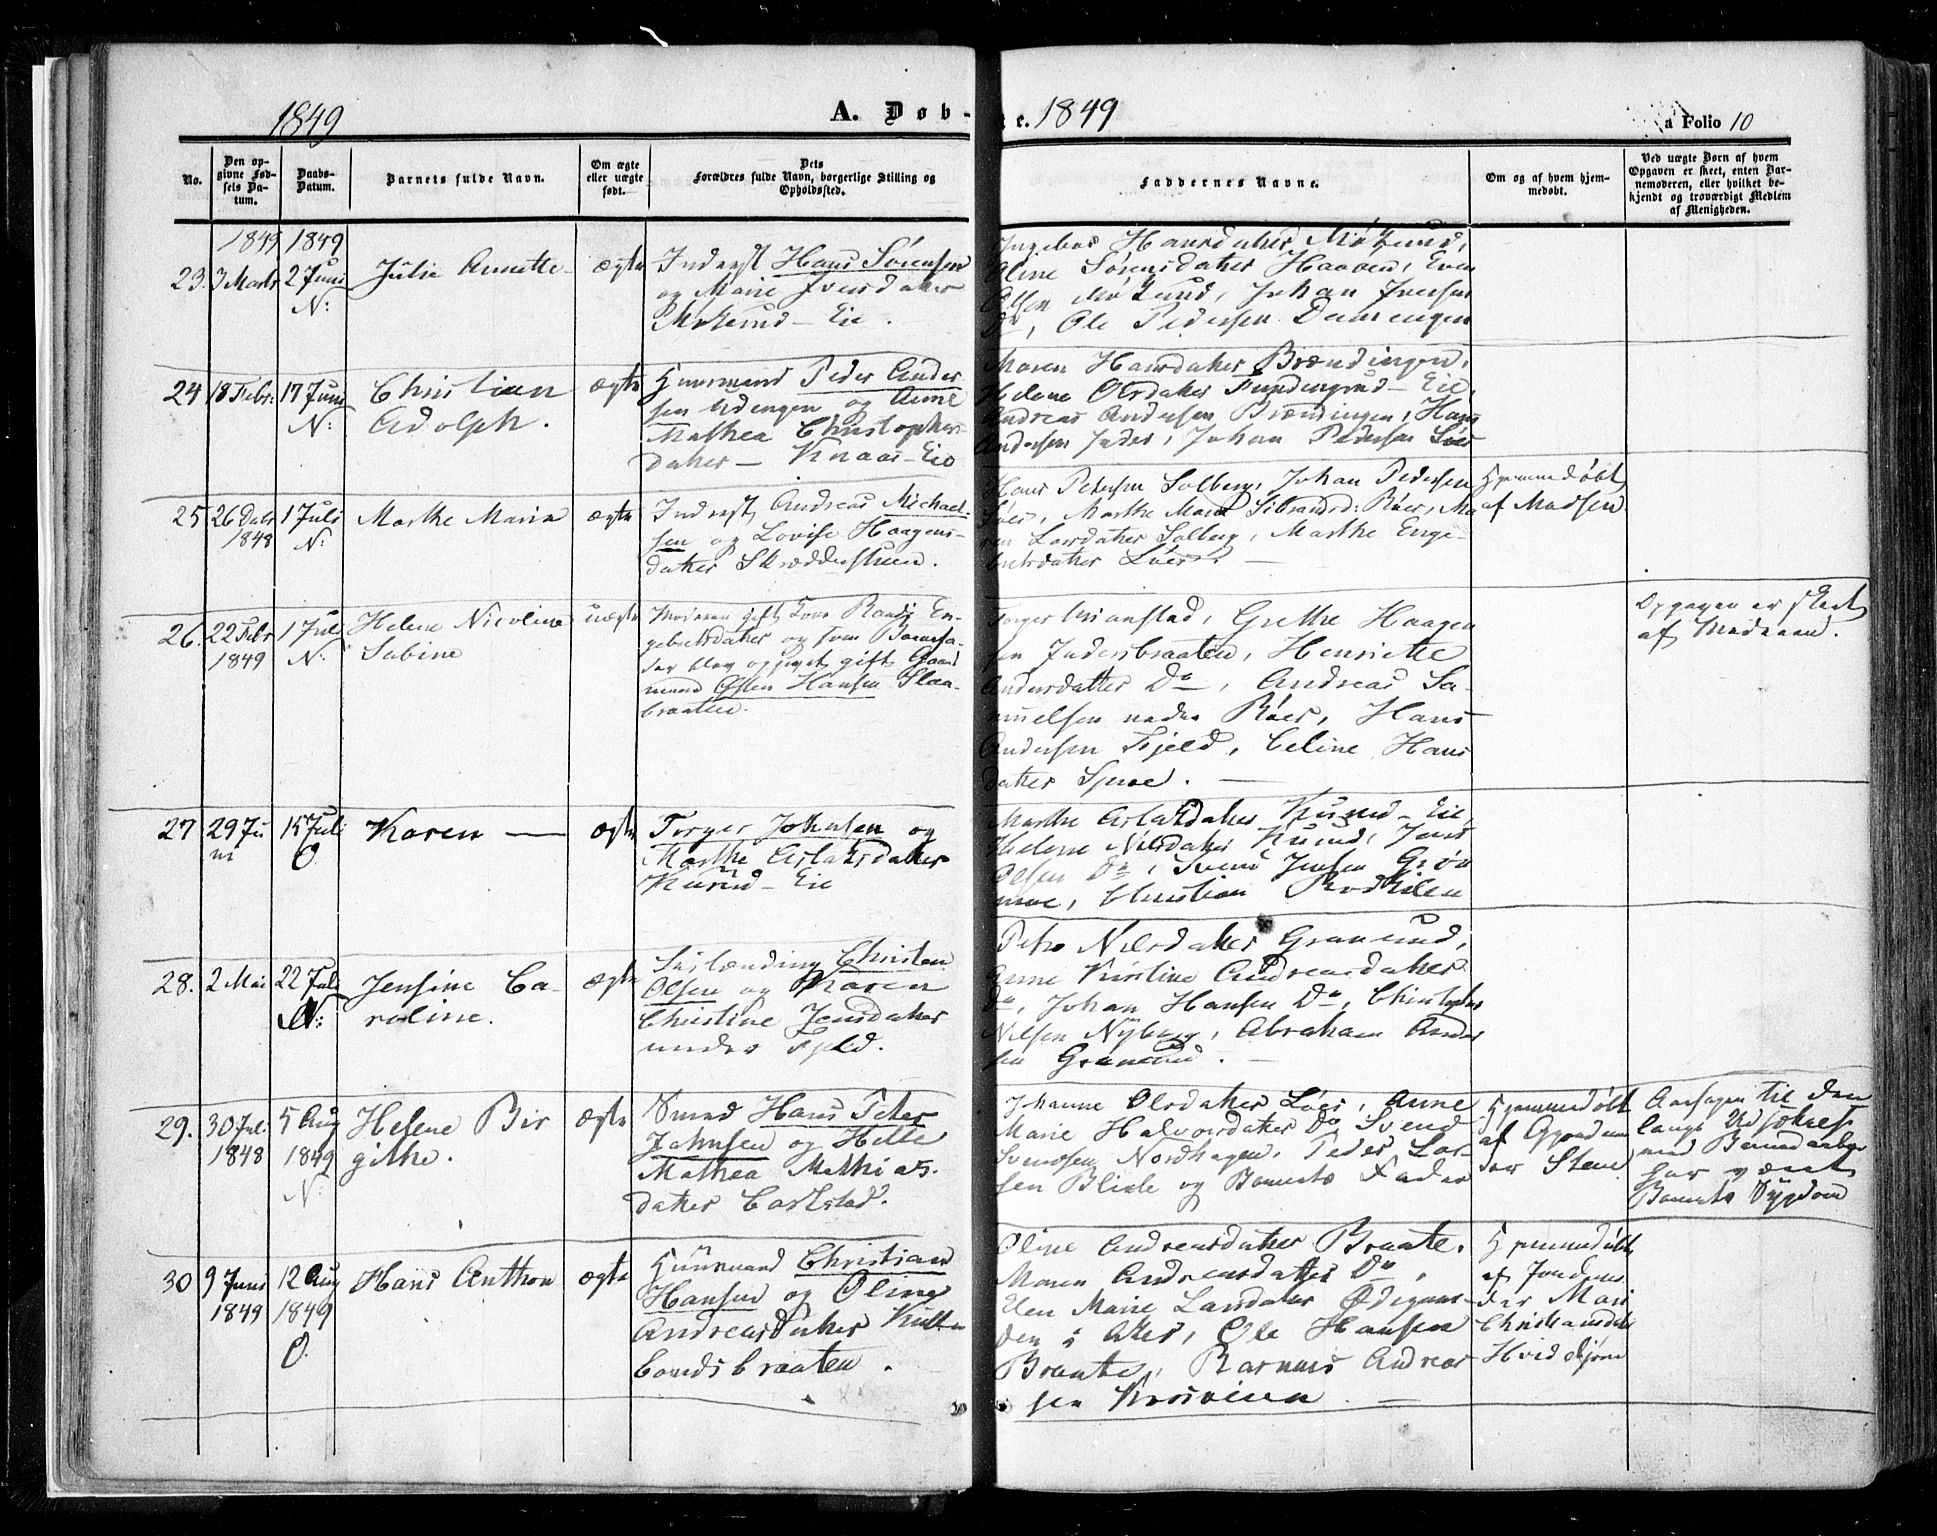 1849 A. Døb- e. 1849 a Folio 10
No.
Den opgivne Fødsels Datum.
Daabs-Datum.
Barnets fulde Navn.
Om ægte eller uægte født.
Dets Forældres fulde Navn, borgerlige Stilling og Opholdssted.
Faddernes Navne.
Om og af hvem hjemmedøbt.
Ved uægte Børn af hvem Opgaven er skeet, enten Barnemoderen, eller hvilket bekjendt og troværdigt Medlem af Menigheden.
1849 1849
23. 3 Marts
2 Juni
N:
Julie Annette
ægte
Inderst Hans Sörensen
og Marie Iversdatter
Mökerud - Eie.
Hansdatter
Oline Sörensdatter Haaven, Even
Olsen Johan Iversen
Do, Ole Pedersen
24 18 Febr:
17 Juni
N:
Christian
Adolph.
ægte
Huusmand Peder Ander
sen og Anne
Mathea Christophers-
datter - Knaas - Eie
Maren Hansdatter Brændingen,
Helene Olsdatter Eie,
Andreas Andersen Brændingen, Hans
Andersen Johan Pedersen
25 26 Debr
1848
1 Juli
N:
Marthe Maria
ægte
Inderst Andreas Michael-
sen og Lovise Haagens-
datter Skrædderstuen.
Hans Petersen Solberg, Johan Pedersen
Marthe Marie
Larsdatter Solberg, Marthe Enge-
bretsdatter
Hjemmedöbt
af Madsen
26. 22 Febr
1849
1 Juli
N:
Helene Nicoline
Sabine
uægte
Moderen gift Kone Randi En-
gebretsdatter og som Barnefa-
der gift Gaard
mand Østen Hansen Slaa-
braaten.
Torger Grethe Haagen
sen Indersbraaten, Henriette
Andersdatter Do, Andreas Sa-
muelsen nedre Röer, Hans
Andersen Fjeld, Celine Hans
datter
Opgaven er skeet
af Moderen.
27 29 Ju
ni
15 Juli
O
Karen —
ægte
Torger Johnsen og
Marthe Aslaksdatter
Kurud - Eie
Marthe Aslaksdatter Kurud - Eie,
Helene Nilsdatter Kurud, Jens
Olsen Do, Svend Jensen Grön
moe, Christian
28. 2 Mai
22 Juli
N:
Jensine Ca-
roline.
ægte
Christen
Olsen og Karen
Christine Jensdatter
under Fjeld.
Petra Nilsdatter Granerud,
Anne Kirstine Andreasdatter
Do, Johan Hansen Do, Christopher
Nilsen Nyberg, Abraham Ander
sen Granerud. —
29. 30 Jul.
1848
5 Aug
1849
N:
Helene Bir
githe.
ægte
Smed Hans Peter
Johnsen og Helle
Mathea Mathias-
datter Carlstad.
Johanne Olsdatter Anne
Marie Halvorsdatter Do, Svend
Svendsen Nordhagen, Peder Lar-
sen Blide og Barnets Fader
Hjemmedöbt
af Gjordemo
der Stene
Aarsagen til den
lange Udsættelse
med Barnedaaben
har været
Barnets Sygdom
30 9 Juni
1849
12 Aug
1849
O
Hans Anthon
ægte
Huusmand Christian
Hansen og Oline
Andreasdatter
braaten.
Oline Andreasdatter Braate,
Maren Andreasdatter Do,
Elen Marie Larsdatter Ødegaar-
den i Aker, Ole Hansen
Braate, Rasmus Andrea-
sen —
Hjemmedöbt
af Jordemo
der Mari
Christiansdatter